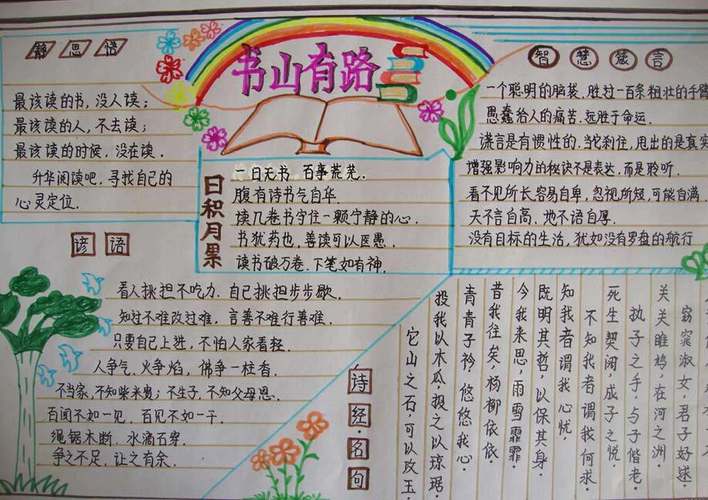 书山有路
静思语
最该读的书，没人读；
最该读的人，不去读；
最该读的时候，没在读．
升华阅读吧，寻找自己的
心灵定位．
日积月累
一日无书，百事荒芜．
腹有诗书气自华．
读几卷书守住一颗宁静的心．
书犹药也，善读可以医愚．
读书破万卷，下笔如有神．
智慧箴言
一个聪明的脑袋，胜过一百条粗壮的手臂
愚蠢给人的痛苦，远胜于命运．
谎言是有惯性的，当刹住，甩出的是真实
增强影响力的秘诀不是表达，而是聆听．
看不见所长容易自卑，忽视所短，可能自满
天不言自高，地不语自厚．
没有目标的生活，犹如没有罗盘的航行
谚语
看人挑担不吃力，自己挑担步步歇．
知过不难改过难，言善不难行善难．
只要自己上进，不怕人家看轻．
人争气，火争焰，佛争一柱香．
不当家，不知柴米贵；不生子，不知父母恩．
百闻不如一见，百见不如一干．
绳锯木断，水滴石穿．
争之不足，让之有余．
诗经名句
窈窕淑女，君子好逑．
关关雎鸠，在河之洲．
执子之手，与子偕老
死生契阔，与子成悦
不知我者，谓我何求．
知我者，谓我心忧
既明其哲，以保其身．
今我来思，雨雪霏霏
昔我往矣，杨柳依依．
青青子衿，悠悠我心．
投我以木瓜，报之以琼琚．
它山之石，可以攻玉．